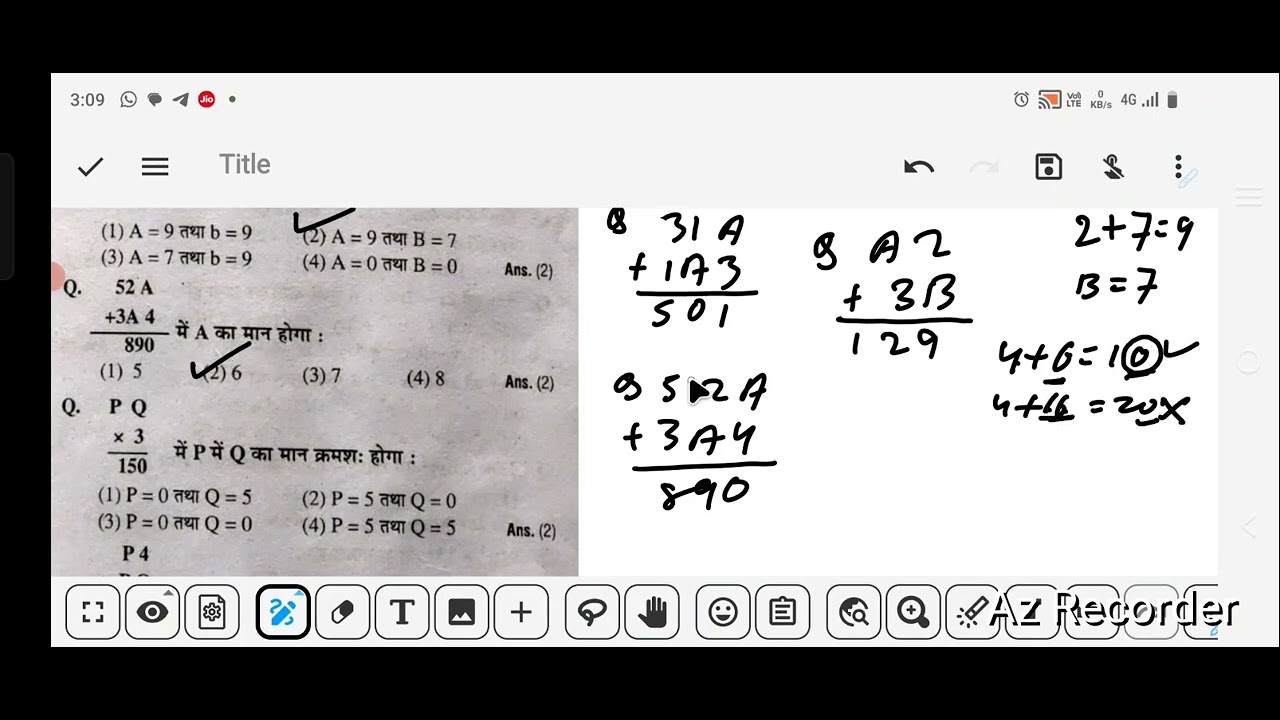 3:09 Jio Vo) LTE 0 KB/s 4G
Title
(1) A = 9 तथा b = 9 (2) A = 9 तथा B = 7
(3) A = 7 तथा b = 9 (4) A = 0 तथा B = 0 Ans. (2)
Q. 52 A
+3A 4
890 में A का मान होगा :
(1) 5 (2) 6 (3) 7 (4) 8 Ans. (2)
Q. P Q
× 3
150 में P में Q का मान क्रमशः होगा :
(1) P = 0 तथा Q = 5 (2) P = 5 तथा Q = 0
(3) P = 0 तथा Q = 0 (4) P = 5 तथा Q = 5 Ans. (2)
P 4
Q 31A
+ 1A3
501
Q A2
+ 3B
129
2+7=9
B=7
4+6=10
4+16=20x
Q 52A
+ 3A4
890
T
Az Recorder